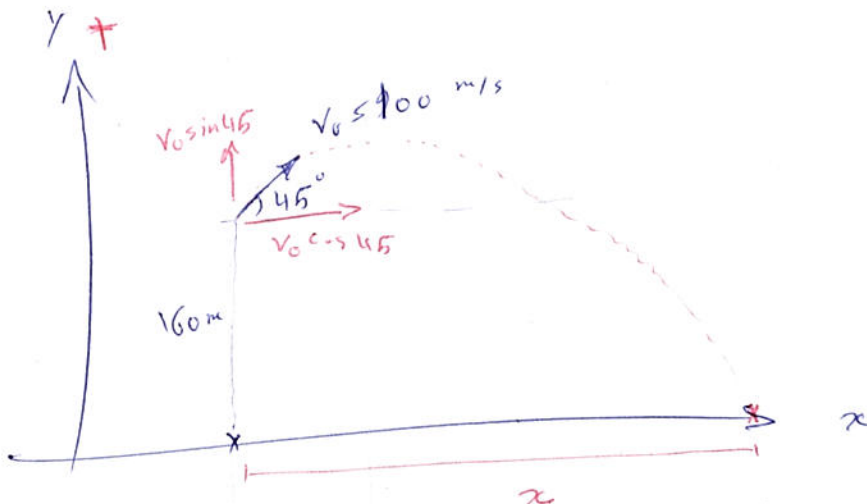 y +
v₀ sin 45
v₀ = 100 m/s
45°
v₀ cos 45
160 m
x
x